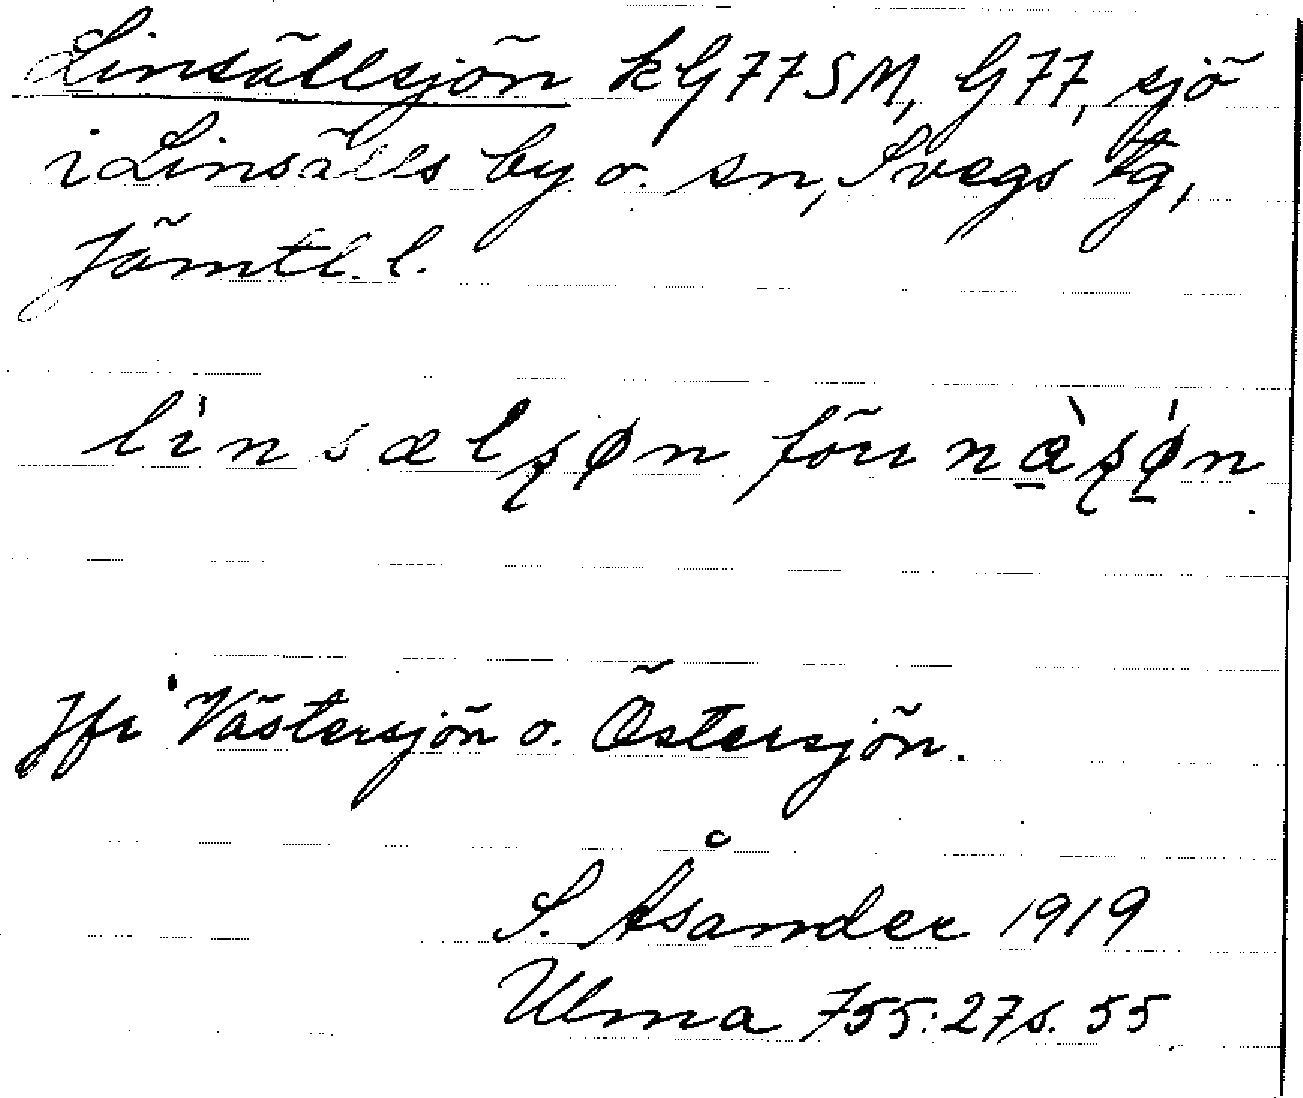 Linsällsjön kG77SM, G77, sjö
i Linsälls by o. sn, Svegs tg,
Jämtl. l.
li̍nsælʂøn förr næ̀ʂø̍n.
Jfr Västersjön o. Östersjön.
S. Åsander 1919
Ulma 755:27 s. 55